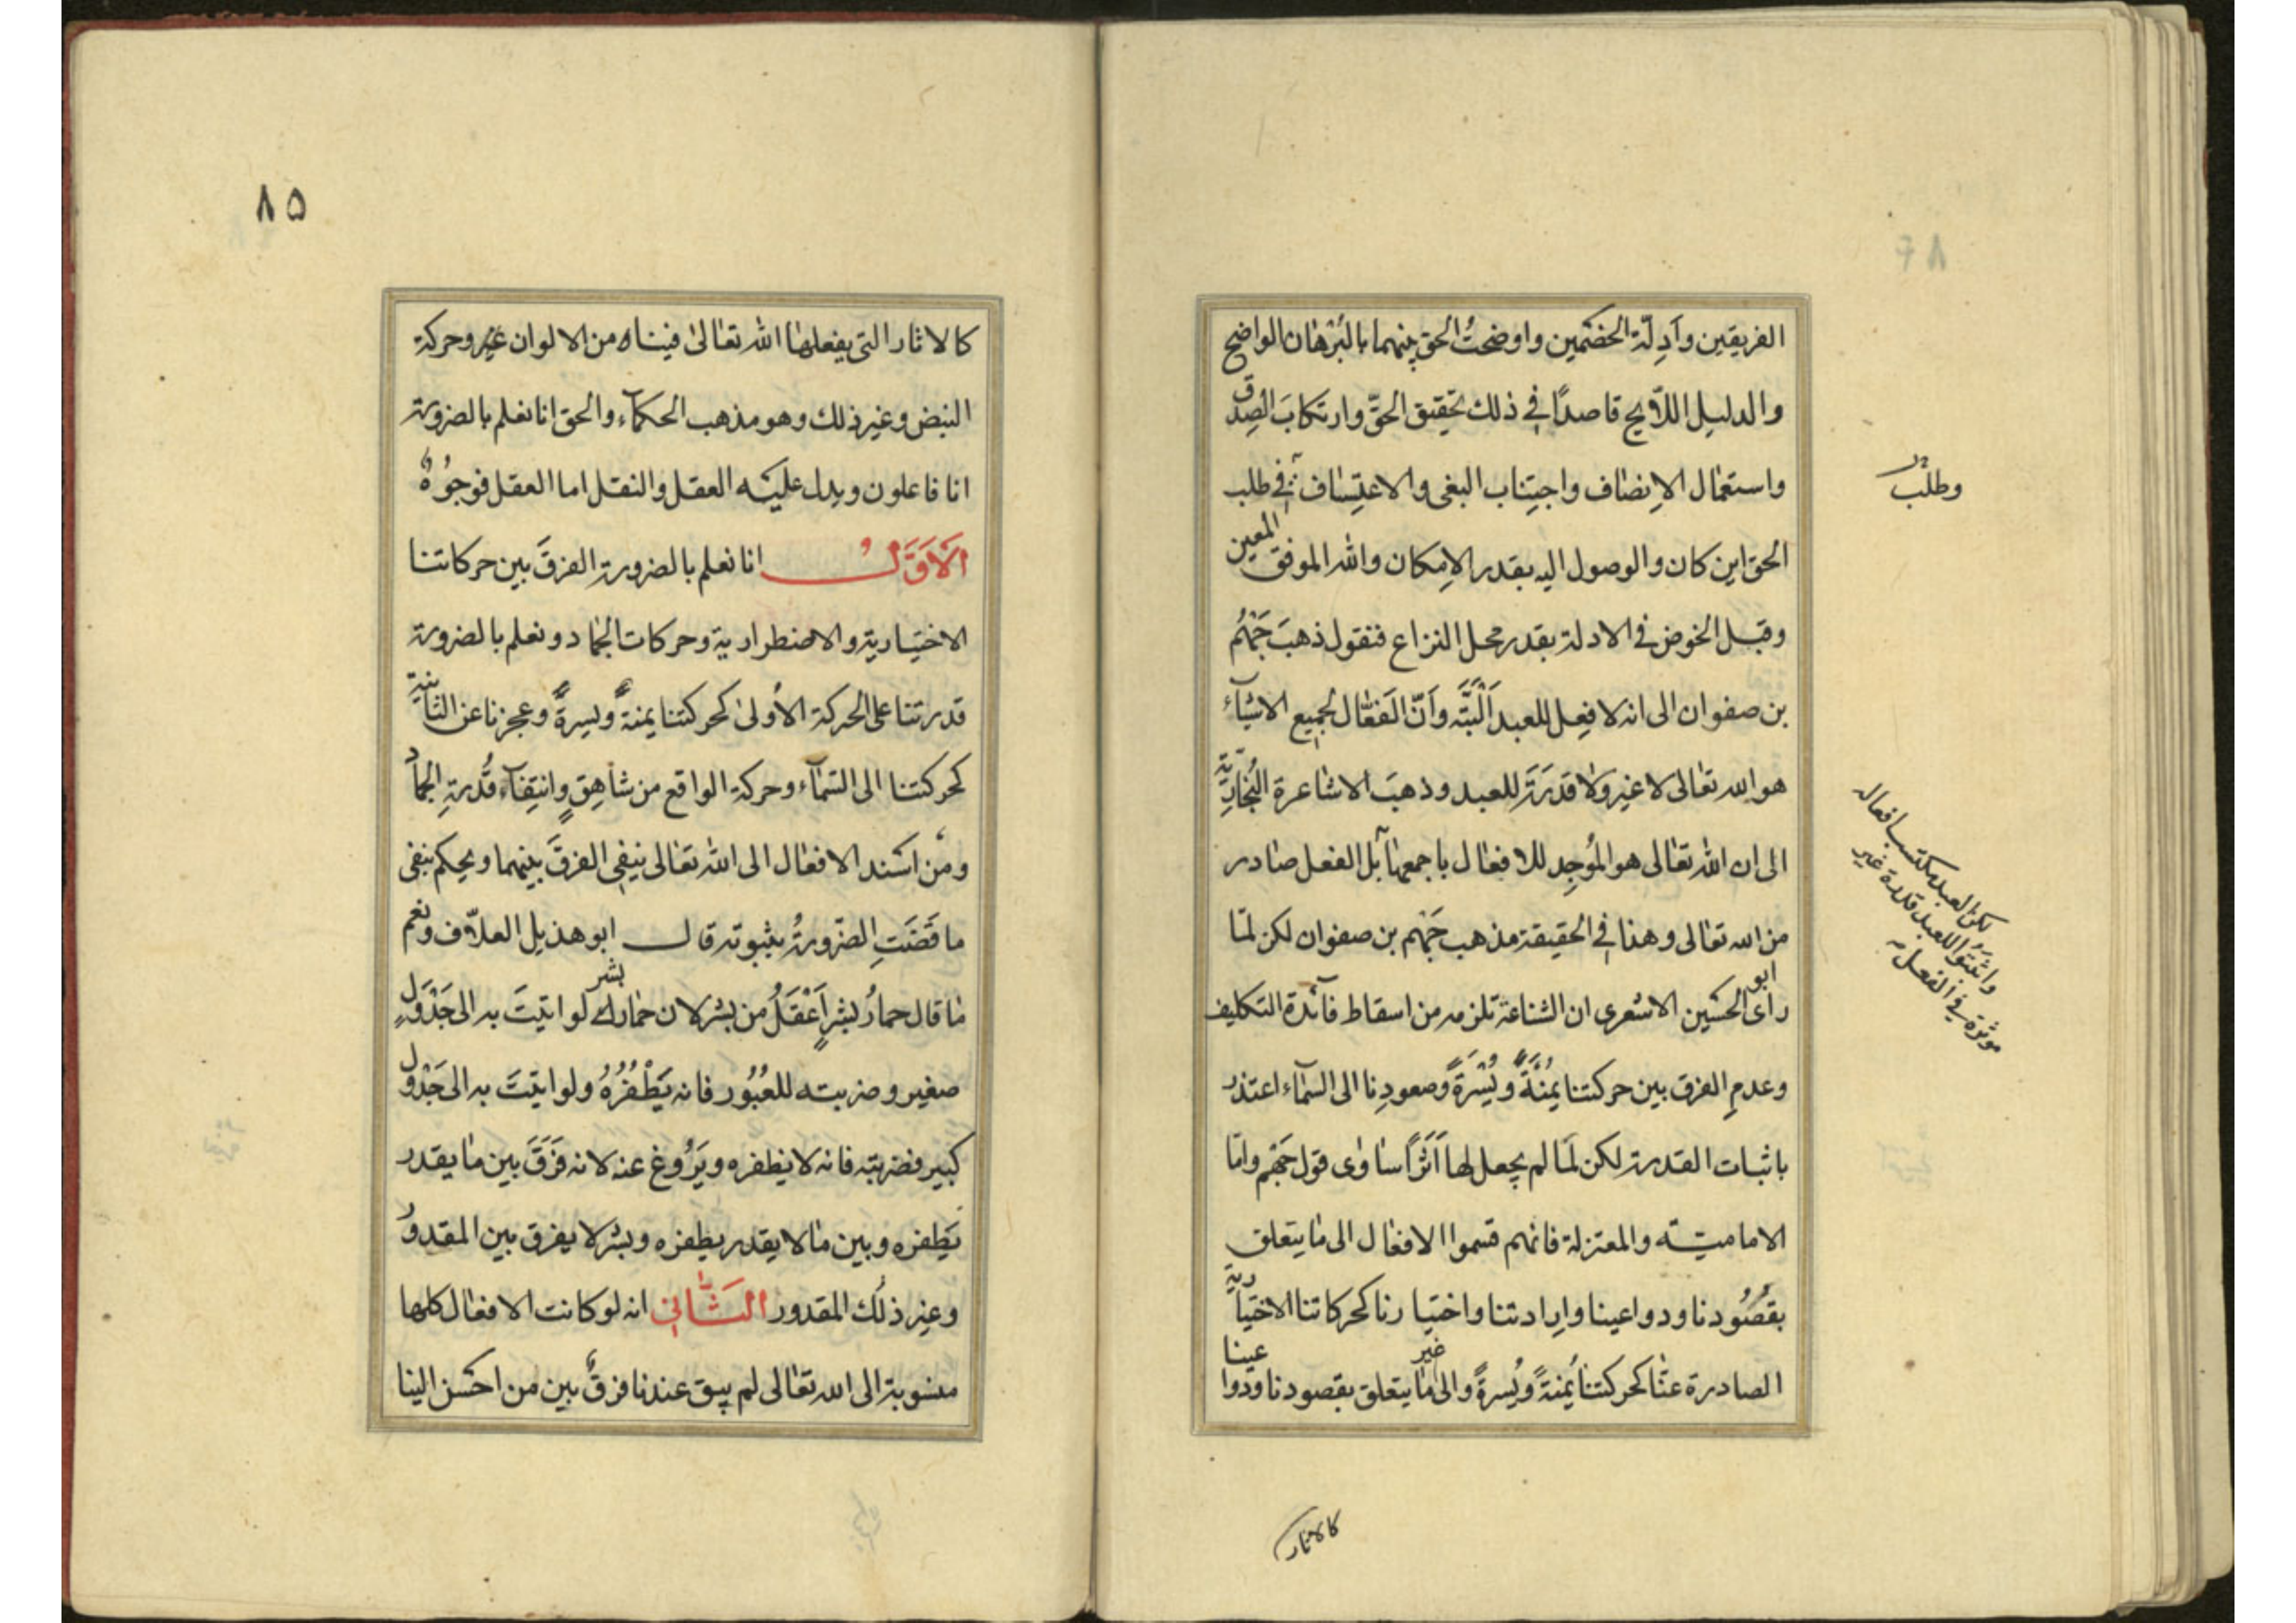 الفريقين وَاَدِلّة الخصْمين واوضحتُ الحق بينهما بالبُرهان الواضح
والدليل اللّايح قاصدًا في ذلك تحقيق الحقّ وارتكابَ الصِدق
واستعمال الإنصاف واجتِناب البغى والاعتِساف في طلب
وطلب
الحق اين كان والوصول اليه بقدر الإمكان والله الموفق المعين
وقبل الخوض في الادلة بقدر محل النزاع فنقول ذهبَ جَهْمُ
بن صفوان الى انه لا فِعل للعبد اَلْبَتَّه وَاَنّ الفعّال لجميع الاشيآء
هو الله تعالى لا غير ولا قدرَةَ للعبد وذهبَ الاشاعرة النُجّاريّة
الى ان الله تعالى هو المُوجِد للافعال باجمعها بل الفعل صادر
لكن العبد مكتسب افعاله
واثبَتُوا للعبد قدرة غير
موثرة في الفعل
من الله تعالى وهذا في الحقيقة مذهب جَهْم بن صفوان لكن لمّا
رأى ابو الحسَين الاشعرى ان الشناعة تلزمه من اسقاط فآئدة التكاليف
وعدمِ الفرق بين حركتنا يُمْنَةً ويُسْرَةً وصعودِنا الى السمآء اعتذر
باثبات القدرة لكن لمّا لم يجعل لها اَثَراً ساوى قول جَهْم وامّا
الاماميّه والمعتزلة فانهم قسموا الافعال الى ما يتعلق
بقُصُودنا ودواعينا وارادتنا واختيارنا كحركاتنا الاختيَارية
الصادرة عنّا كحركتنا يُمنةً ويُسرةً والى ما غير يتعلق بقصودنا ودواعينا
كالاثار
٨٥
كالاثار التى يفعلها الله تعالى فينا من الالوان غير وحركة
النبض وغير ذلك وهو مذهب الحكمآء والحق انا نعلم بالضرورة
انا فاعلون ويدل عليه العقل والنقل اما العقل فوجوُهٌ
الاَوَّلُ انا نعلم بالضرورة الفرقَ بين حركاتنا
الاختيَارية والاضطرارية وحركات الجماد ونعلم بالضرورة
قدرتنا على الحركة الأولى كحركتنا يمنةً ويسرةً وعجزنا عن الثانية
كحركتنا الى السّمآء وحركة الواقع من شاهِقٍ وانتِفآء قُدرةِ الجماد
ومَن اسَند الافعال الى الله تعالى ينفِى الفرقَ بينهما ويحكم بنفى
ما قَضَتِ الضّرورةُ بثبوته قال ابو هذيل العلّاف ونعم
ما قال حمارُ بشرٍ اَعْقَلُ من بشر لان حمار بشر لو اتيتَ به الى جَدْوَلٍ
صغير وضربته للعُبُور فانه يَطْفُرُهُ ولو اتيتَ به الى جَدْوَل
كبير فضربته فانه لا يطفره ويَرُوغ عنه لانه فَرَقَ بين ما يقدر
يَطفره وبين ما لا يقدر يطفره وبشر لا يفرق بين المقدورُ
وغير ذلك المقدور الثّانى انه لو كانت الافعال كلها
منسوبة الى الله تعالى لم يبق عندنا فرقٌ بين من احسَن الينا